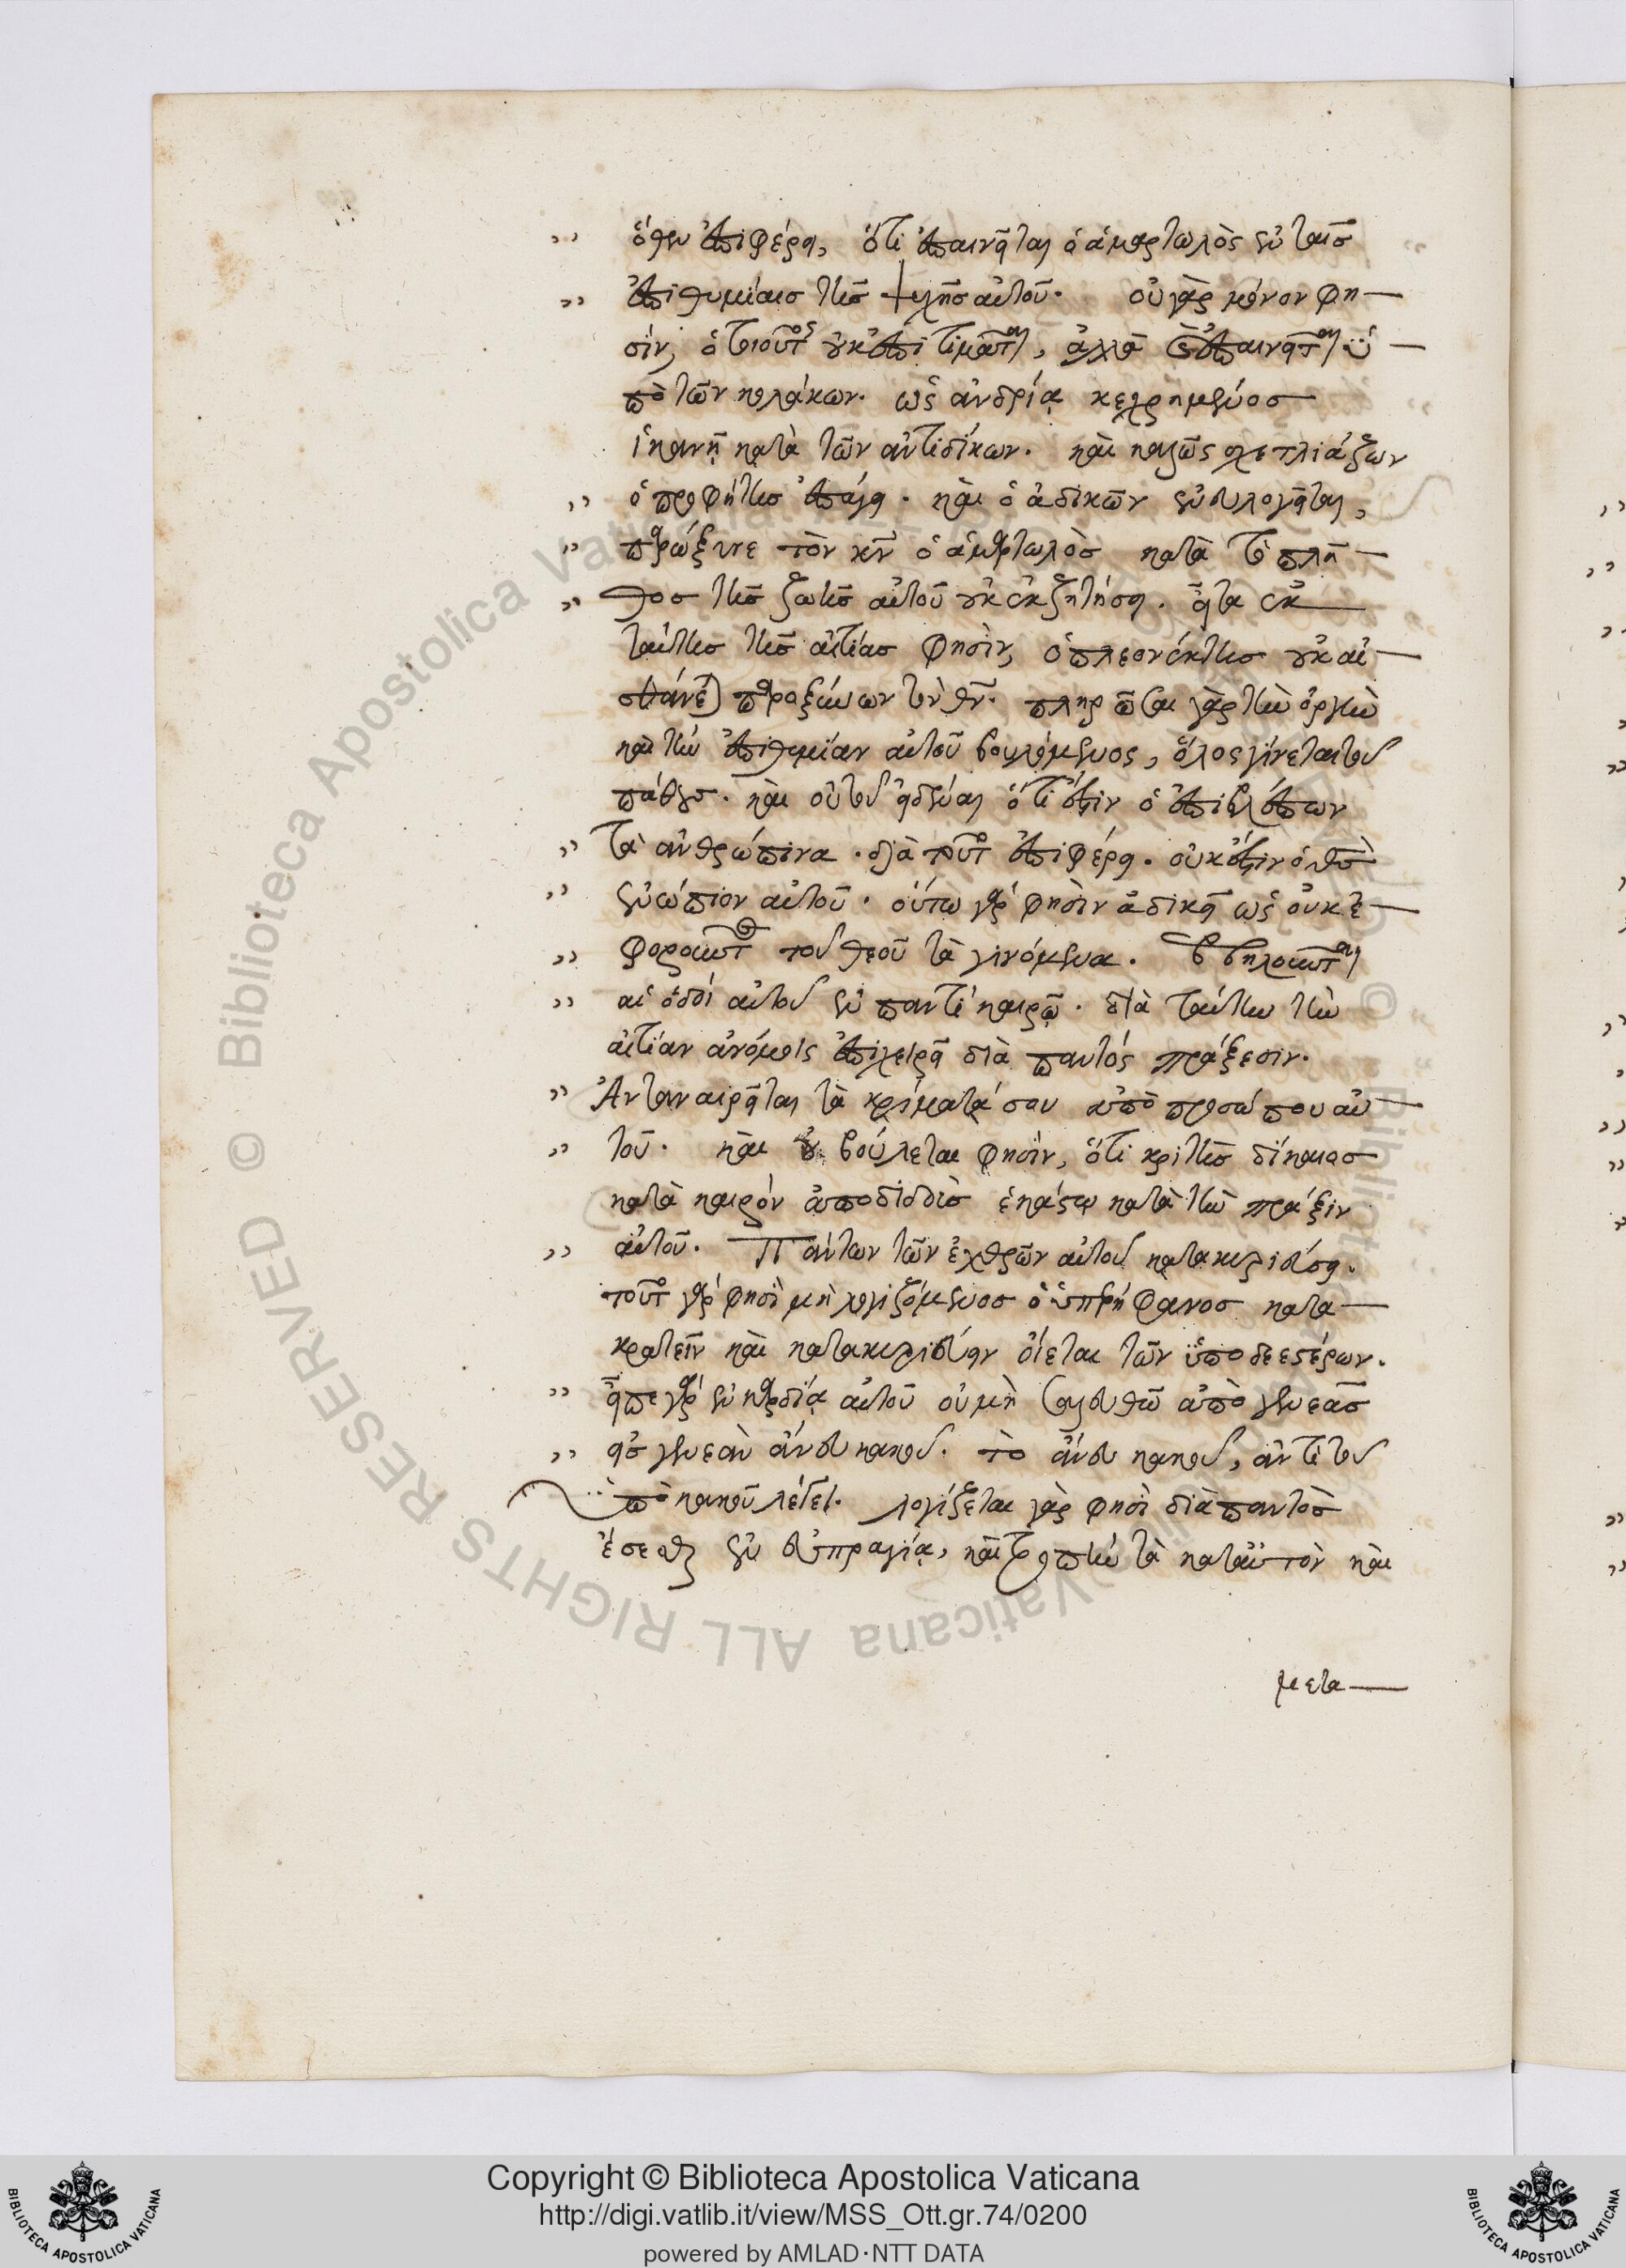 ὅθεν ἐπιφέρει, ὅτι ἐπαινεῖται ὁ ἁμαρτωλὸς ἐν ταῖσ
ἐπιθυμίαισ τῆσ ψυχῆσ αὐτοῦ. οὐ γὰρ μόνον φη
σίν, ὁ τοιοῦτος οὐκ ἐπιτιμᾶται, ἀλλὰ καὶ ἐπαινεῖται ὑ
πὸ τῶν κολάκων. ὡς ἀνδρίᾳ κεχρημένοσ
ἱκανῇ κατὰ τῶν ἀντιδίκων. καὶ καθὼς σχετλιάζων
ὁ προφήτησ ἐπάγει. καὶ ὁ ἀδικῶν ἐνευλογεῖται,
παρώξυνε τὸν κν ὁ ἁμαρτωλὸσ κατὰ τὸ πλῆ
θοσ τῆσ ὀργῆσ αὐτοῦ οὐκ ἐκζητήσει. εἶτα ἐκ
ταύτησ τῆσ αἰτίασ φησὶν, ὁ πλεονέκτησ οὐκ αἰ
σθάνεται παροξύνων τὸν θν. πληρῶσαι γὰρ τὴν ὀργὴν
καὶ τὴν ἐπιθυμίαν αὐτοῦ βουλόμενος, ὅλος γίνεται τοῦ
πάθουσ. καὶ οὐ τοῦ εἰδέναι ὅτι ἔστιν ὁ ἐπιβλέπων
τὰ ἀνθρώπινα. διὰ τοῦτο ἐπιφέρει. οὐκ ἔστιν ὁ θσ
ἐνώπιον αὐτοῦ. οὕτω γάρ φησὶν ἀδικεῖ ὡς οὐκ ἐ
φορῶντος τοῦ θεοῦ τὰ γινόμενα. βεβηλοῦνται
αἱ ὁδοί αὐτοῦ ἐν παντὶ καιρῷ. διὰ ταύτην τὴν
αἰτίαν ἀνόμοις ἐπιχειρεῖ διὰ παντός πράξεσιν.
Ἀνταναιρεῖται τὰ κρίματά σου ἀπὸ προσώπου αὐ
τοῦ. καὶ οὐ βούλεται φησίν, ὅτι κριτὴσ δίκαιοσ
κατὰ καιρόν ἀποδίδωσ ἑκάστῳ κατὰ τὴν πρᾶξιν
αὐτοῦ. Πάντων τῶν ἐχθρῶν αὐτοῦ κατακυριεύσει.
τοῦτο γάρ φησὶ μὴ λογιζόμενοσ ὁ ὑπερήφανοσ κατα
κρατεῖν καὶ κατακυριεύειν οἴεται τῶν ὑποδεεστέρων.
εἶπε γάρ ἐν καρδίᾳ αὐτοῦ οὐ μὴ σαλευθῶ ἀπὸ γενεᾶσ
εἰσ γενεὰν ἄνευ κακοῦ. τὸ ἄνευ κακοῦ, ἀντὶ τοῦ
ὑπὸ κακοῦ λέγει. λογίζεται γὰρ φησὶ διὰ παντὸσ
ἔσεσθαι ἐν εὐπραγίᾳ, καὶ τροπὴν τὰ κατ' αὐτὸν καὶ
μετα